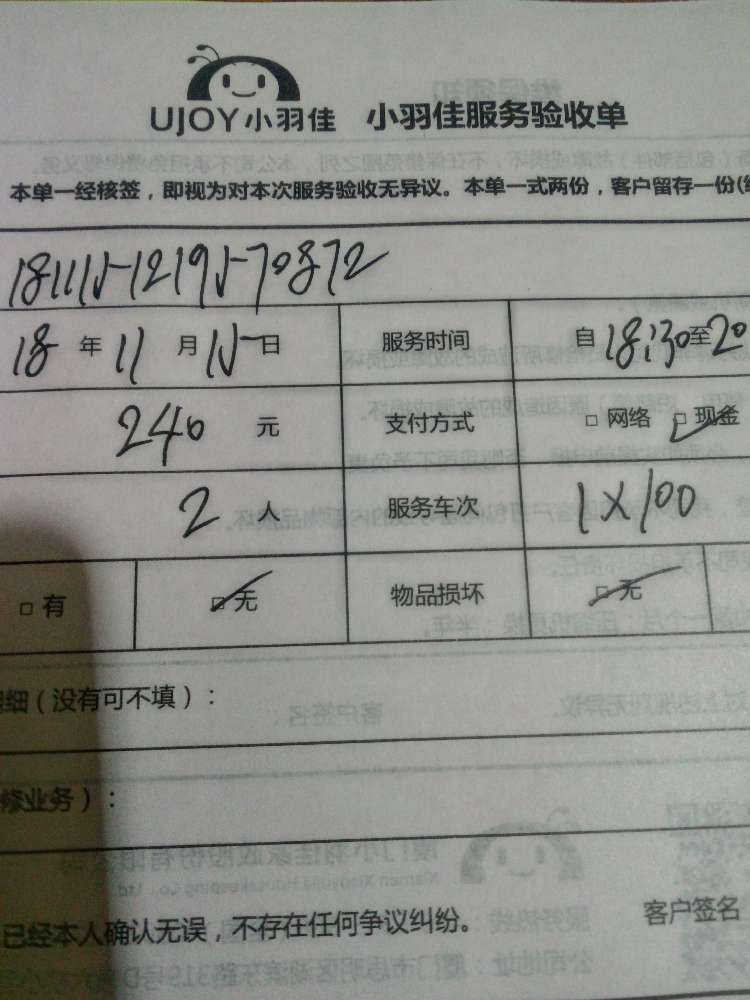 UJOY小羽佳 小羽佳服务验收单
本单一经核签，即视为对本次服务验收无异议。本单一式两份，客户留存一份(
181115-12195-70872
18 年 11 月 15 日 服务时间 自 18:30 至 20
240 元 支付方式 □ 网络 □ 现金
2 人 服务车次 1X100
□ 有 □ 无 物品损坏 □ 无
细（没有可不填）：
修业务）：
已经本人确认无误，不存在任何争议纠纷。 客户签名